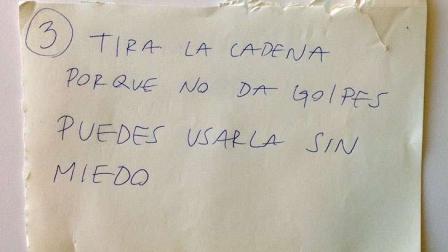 3 TIRA LA CADENA
PORQUE NO DA GOLPES
PUEDES USARLA SIN
MIEDO